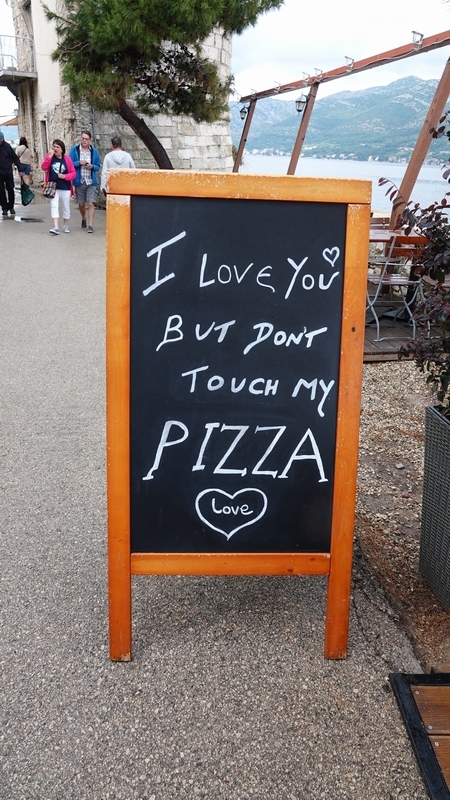 I LOVE YOU
BUT DON'T
TOUCH MY
PIZZA
Love